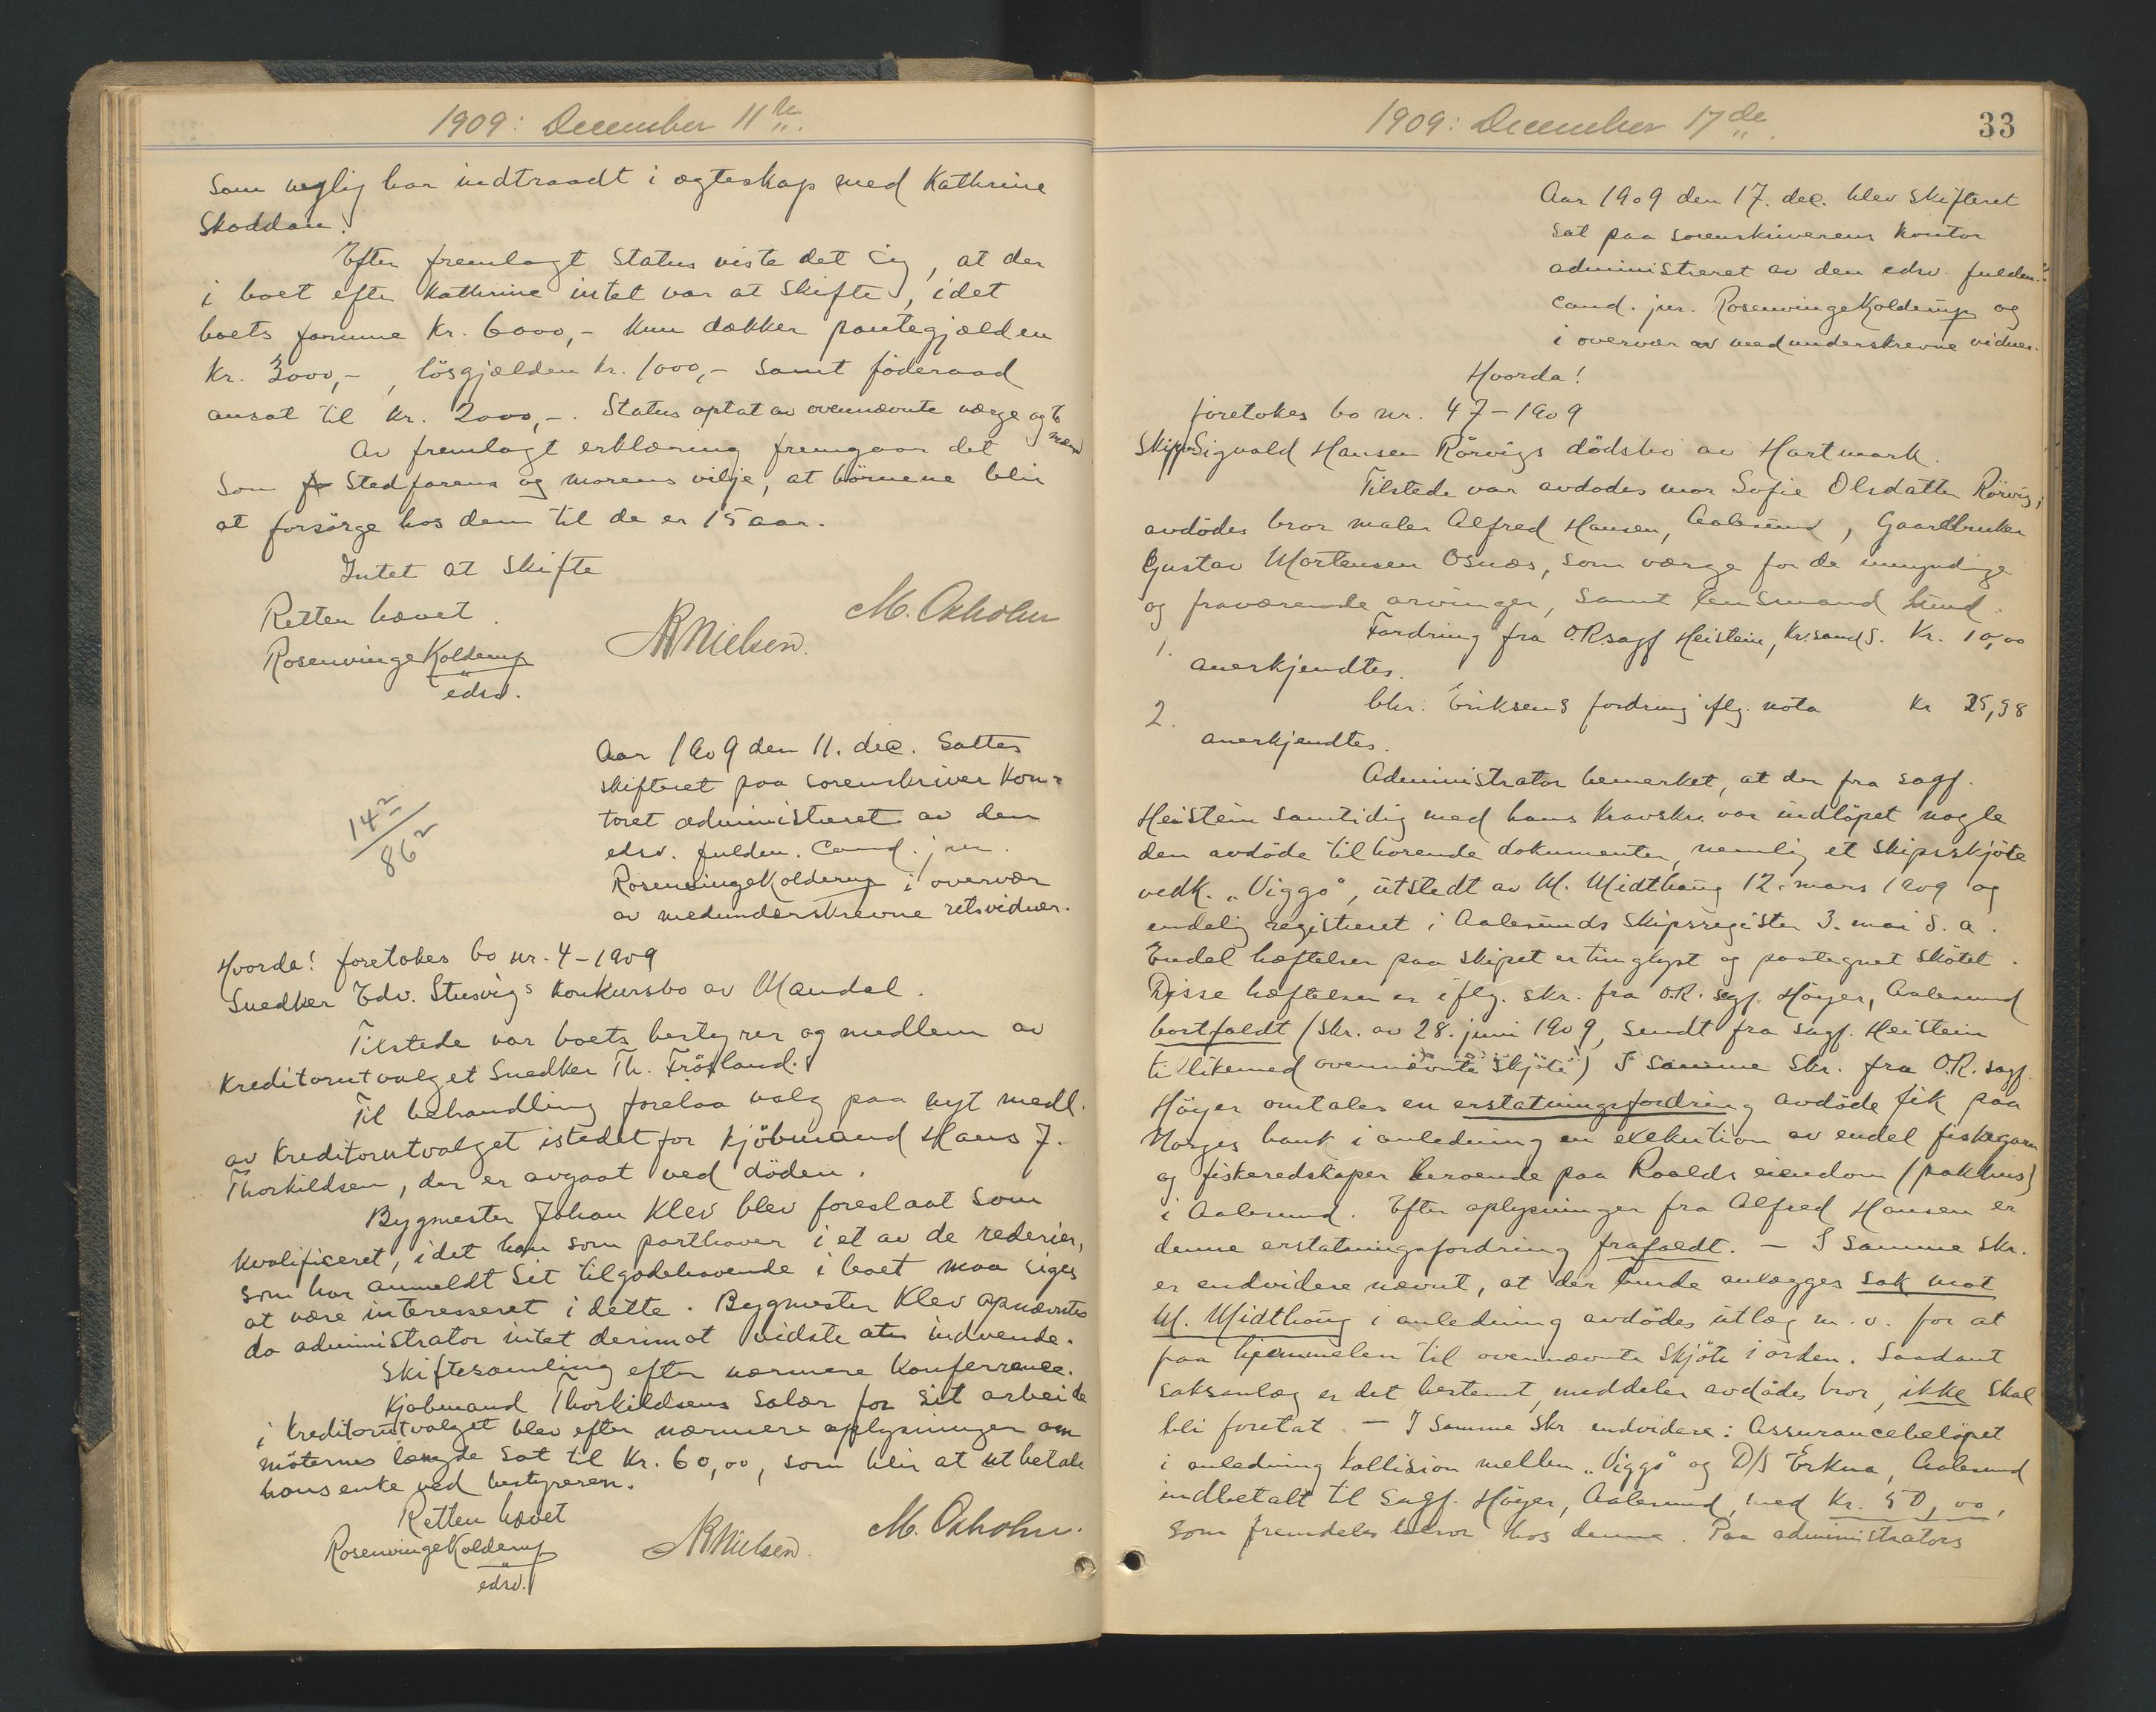 1909: December 11te
Som neylig har indtraadt i ægteskap med Kathrine
Skoddan.
Efter fremlagt Status viste det sig, at der
i boet efter Kathrine intet var at skifte, idet
boets formue Kr. 6000,- kun dækker pantegjælden
Kr. 3000,-, lösgjælden kr. 1000,- samt föderaad
ansat til kr. 2000,-. Status optat av ovennævnte værge og to
mænd
Av fremlagt erklæring fremgaar det
Som Stedfarens og morens vilje, at börnene blir
at forsörge hos dem til de er 15 aar.
Intet at skifte
Retten hævet.
RosenvingeKolderup
edsv.
NNielsen.
M. Oxholm
142/862
Aar 1909 den 11. dec. sattes
skifteret paa sorenskriver kon=
toret administreret av den
edsv. fuldm. cand. jur.
RosenvingeKolderup i overvær
av medunderskrevne retsvidner.
Hvorda! foretokes bo nr. 4-1909
Snedker Edv. Stusvigs konkursbo av Mandal.
Tilstede var boets bestyrer og medlem av
kreditorutvalget Snedker Th. Frösland.
Til behandling forelaa valg paa nyt medl.
av kreditorutvalget istedetfor kjöbmand Hans J.
Thorkildsen, der er avgaat ved döden.
Bygmester Johan Klev blev foreslaat som
kvalificeret, idet han som parthaver i et av de rederier,
som har anmeldt sit tilgodehavende i boet maa siges
at være interesseret i dette. Bygmester Klev opnævntes
da administrator intet derimot vidste at indvende.
Skiftesamling efter nærmere konferrence.
Kjøbmand Thorkildsens salær for sit arbeide
i kreditorutvalget blev efter nærmere oplysninger om
möternes længde sat til kr. 60,00, som blir at utbetale
hans enke ved bestyreren.
Retten hævet
RosenvingeKolderup
edsv.
NNielsen
M. Oxholm.
1909: December 17de
33
Aar 1909 den 17. dec. blev skifteret
sat paa sorenskriverens kontor
administreret av den edsv. fuldm.
cand. jur. RosenvingeKolderup og
i overvær av medunderskrevne vidner.
Hvorda!
foretokes bo nr. 47-1909
Skipp. Sigvald Hansen Rörvigs dödsbo av Hartmark.
Tilstede var avdødes mor Sofie Olsdatter Rörvig,
avdödes bror maler Alfred Hansen, Aalesund, Gaardbruker
Gustav Mortensen Osnæs, som værge for de umyndige
og fraværende arvinger, samt lensmand Lund.
1. Fordring fra O.R.sagf Heistein, Kr.sand S. Kr. 10,00
anerkjendtes.
2. Chr. Eriksens fordring iflg. nota Kr 25,98
anerkjendtes.
Administrator bemerket, at der fra sagf.
Heistein samtidig med hans kravskr. var indlöpet nogle
den avdöde tilhorende dokumenter, nemlig et skipsskjöte
vedk. "Viggo", utstedt av M. Midthaug 12. mars 1909 og
endelig registreret i Aalesunds skipsregister 3. mai s. a.
Endel hæftelser paa skipet er tinglyst og paategnet skötet.
Disse hæftelser er iflg. skr. fra O.R. sagf. Höyer, Aalesund
bortfaldt (skr. av 28. juni 1909, sendt fra sagf. Heistein
tillikemed ovennævnte skjöte) I samme skr. fra O.R. sagf.
Höyer omtales en erstatningsfordring avdöde fik paa
Norges bank i anledning en exekution av endel fiskegarn
og fiskeredskaper beroende paa Roalds eiendom (pakhus)
i Aalesund. Efter oplysninger fra Alfred Hansen er
denne erstatningsfordring frafaldt. — I samme skr.
er endvidere nævnt, at der burde anlægges sak mot
M. Midthaug i anledning avdödes utlæg m. v. for at
faa hjemmelen til ovennævnte skjöte i orden. Saadant
saksanlæg er det bestemt, meddeler avdödes bror, ikke skal
bli foretat. — I samme skr endvidere: Assurancebelöpet
i anledning kollision mellem "Viggo" og D/S Erkna, Aalesund
indbetalt til sagf. Höyer, Aalesund, med kr. 50,00,
som fremdeles beror hos denne. Paa administrators